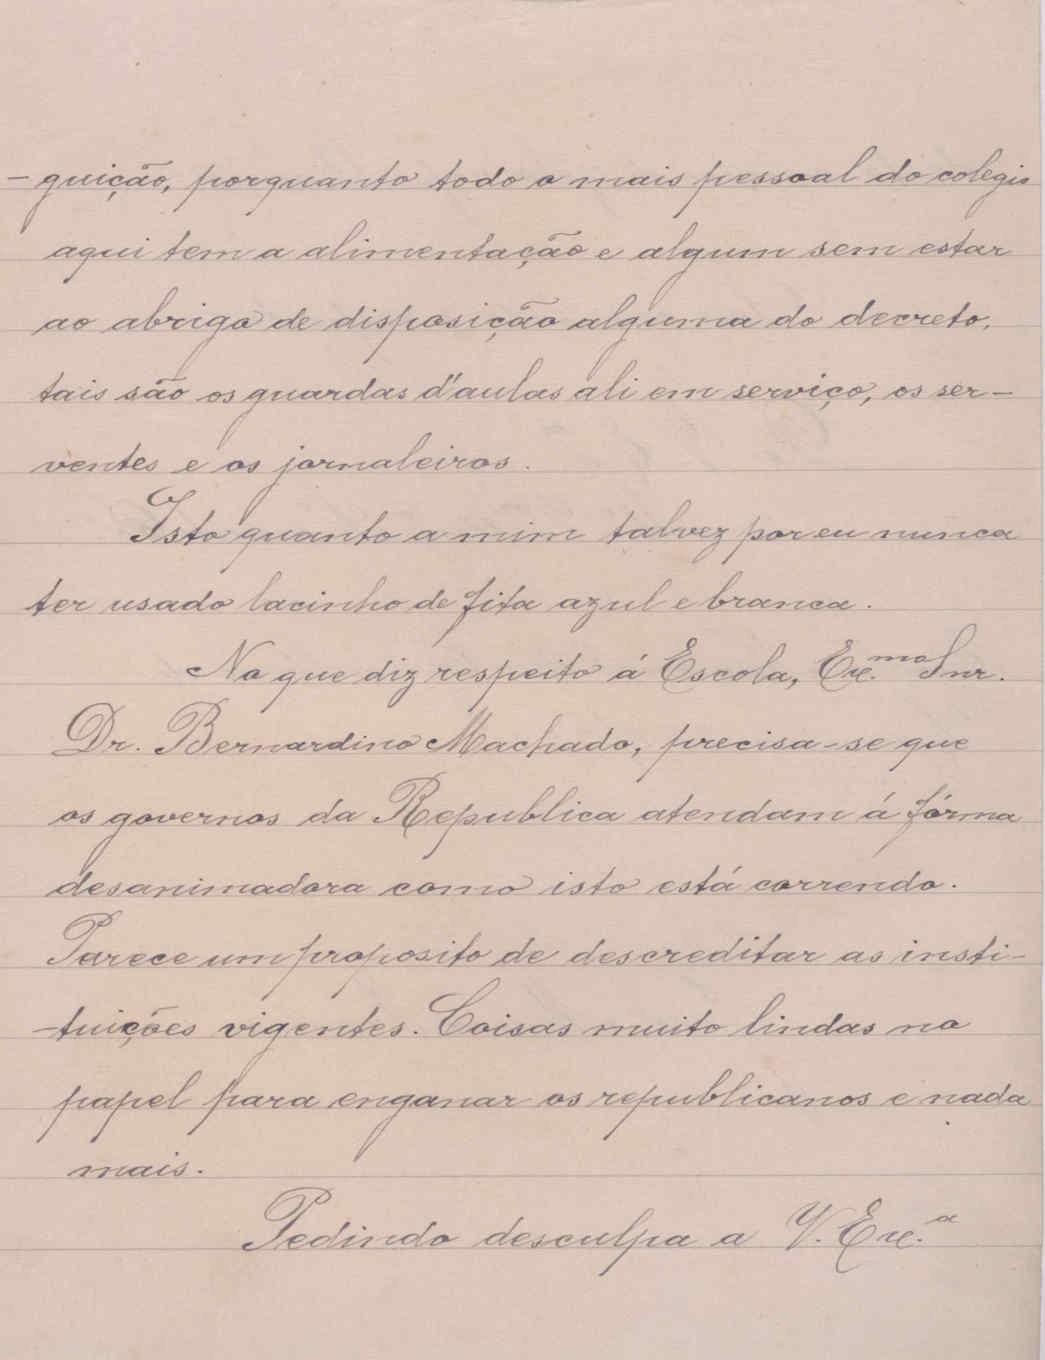 -guição, porquanto todo o mais pessoal do colegio
aqui tem a alimentação e algum sem estar
ao abrigo de disposição alguma do decreto,
tais são os guardas d'aulas ali em serviço, os ser-
ventes e os jornaleiros.
Isto quanto a mim talvez por eu nunca
ter usado lacinho de fita azul e branca.
No que diz respeito á Escola, Exc.mo Snr.
Dr. Bernardino Machado, precisa-se que
os governos da Republica atendam á fórma
desanimadora como isto está correndo.
Parece um proposito de descreditar as insti-
-tuições vigentes. Coisas muito lindas no
papel para enganar os republicanos e nada
mais.
Pedindo desculpa a V. Exc.a